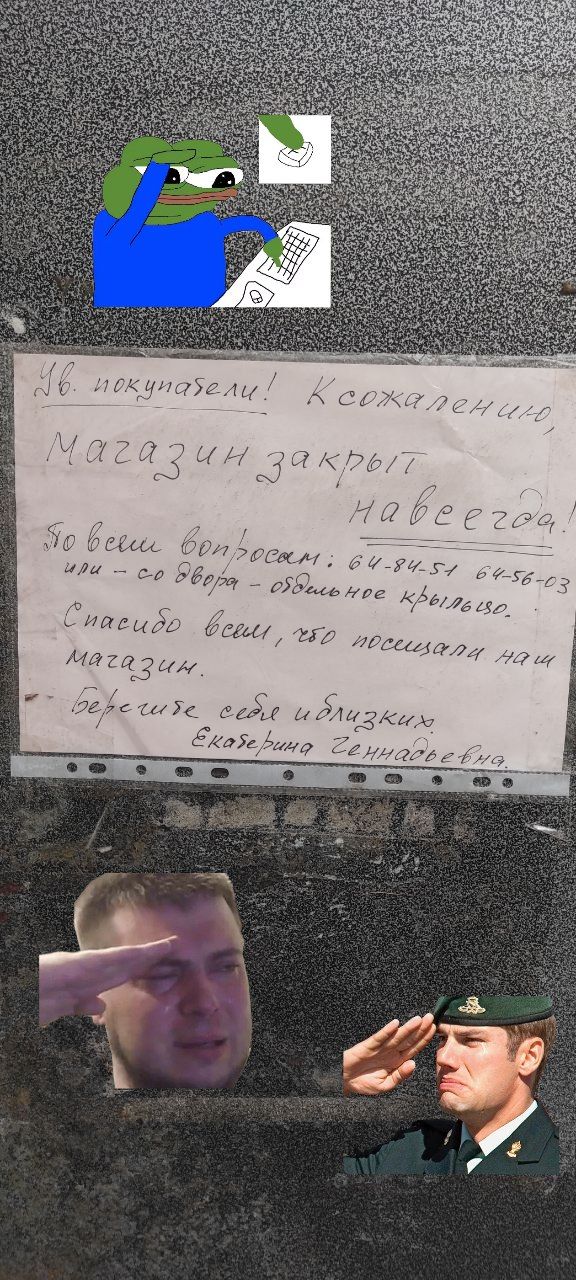 Ув. покупатели! К сожалению,
магазин закрыт
навсегда!
По всем вопросам: 64-84-51 64-56-03
или - со двора - отдельное крыльцо.
Спасибо всем, что посещали наш
магазин.
Берегите себя и близких
Екатерина Геннадьевна.